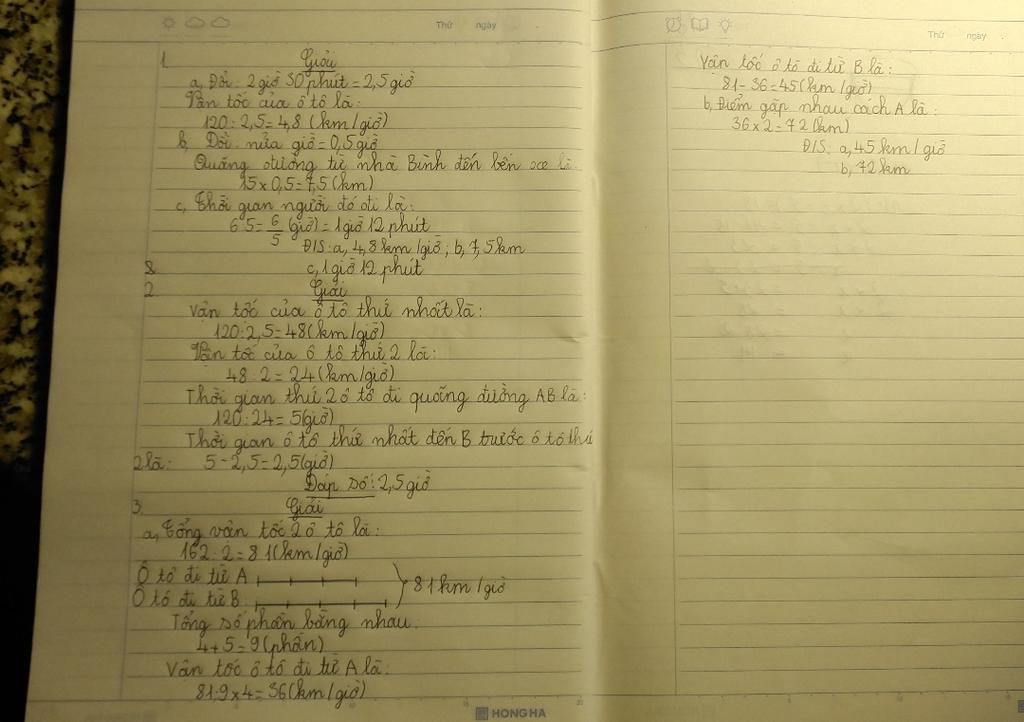 Thứ ngày
1. Giải
a, Đổi: 2 giờ 30 phút = 2,5 giờ
Vận tốc của ô tô là:
120 : 2,5 = 4,8 (km/giờ)
b, Đổi: nửa giờ = 0,5 giờ
Quãng đường từ nhà Bình đến bến oce là:
15 x 0,5 = 7,5 (km)
c, Thời gian người đó đi là:
6 : 5 = 6/5 (giờ) = 1 giờ 12 phút
Đ/S: a, 4,8 km/giờ; b, 7,5 km
c, 1 giờ 12 phút
2. Giải
Vận tốc của ô tô thứ nhất là:
120 : 2,5 = 48 (km/giờ)
Vận tốc của ô tô thứ 2 là:
48 : 2 = 24 (km/giờ)
Thời gian thứ 2 ô tô đi quãng đường AB là:
120 : 24 = 5 (giờ)
Thời gian ô tô thứ nhất đến B trước ô tô thứ
2 là: 5 - 2,5 = 2,5 (giờ)
Đáp số: 2,5 giờ
3. Giải
a, Tổng vận tốc 2 ô tô là:
162 : 2 = 81 (km/giờ)
Ô tô đi từ A
81 km/giờ
Ô tô đi từ B
Tổng số phần bằng nhau:
4 + 5 = 9 (phần)
Vân tốc ô tô đi từ A là:
81:9 x 4 = 36 (km/giờ)
HONG HA
Thứ ngày
Vân tốc ô tô đi từ B là:
81 - 36 = 45 (km/giờ)
b, Điểm gặp nhau cách A là:
36 x 2 = 72 (km)
Đ/S: a, 45 km/giờ
b, 72 km